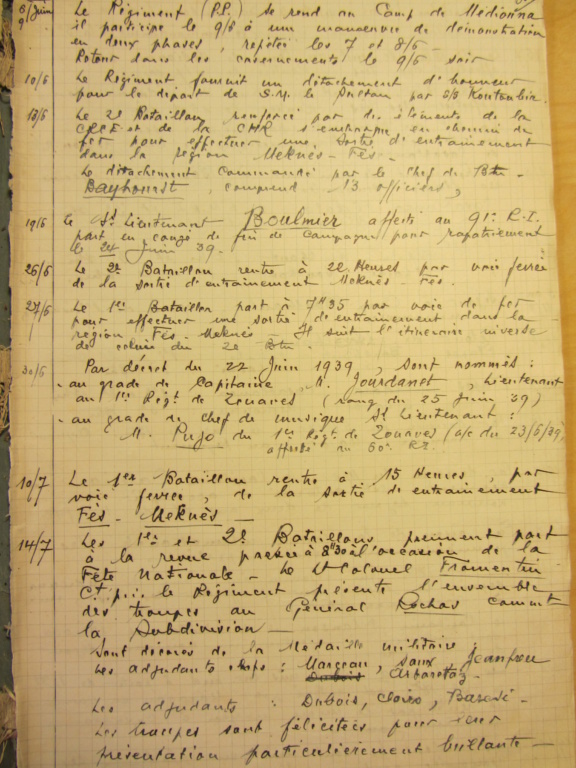 6 Juin Le Régiment (P.P.) se rend au Camp de Médiouna
9 il participe le 9/6 à une manoeuvre de démonstration
en deux phases, répétée les 7 et 8/6 -
Retour dans les casernements le 9/6 soir
10/6 Le Régiment fournit un détachement d'honneur
pour le départ de S.M. le Sultan par s/s Koutoubia.
13/6 Le 2e Bataillon renforcé par des éléments de la
CRE et de la CHR s'embarque en chemin de
fer pour effectuer une sortie d'entrainement
dans la région Meknès - Fès.
Le détachement commandé par le Chef de Btn -
Bayhourst, comprend 13 officiers,
19/6 le S/Lieutenant Boulmier affecté au 91e R.I.
part en congé de fin de campagne pour rapatriement
le Juin 39.
26/6 Le 2e Bataillon rentre à 22 Heures par voie ferrée
de la sortie d'entrainement Meknès - Fès.
27/6 Le 1er Bataillon part à 7H35 par voie de fer
pour effectuer une sortie d'entrainement dans la
région Fès - Meknès - Il suit l'itinéraire inverse
de celui du 2e Btn.
30/6 Par décret du 22 Juin 1939, sont nommés :
- au grade de Capitaine, M. Jourdanet, Lieutenant
au 1er Régt de Zouaves (rang du 25 Juin 39)
- au grade de Chef de musique St Lieutenant :
M. Pujo du 1er Régt de Zouaves (a/c du 23/6/39)
affecté au 60e R.I.
10/7 Le 1er Bataillon rentre à 15 Heures, par
voie ferrée, de la sortie d'entrainement
Fès - Meknès -
14/7 Les 1er et 2e Bataillons prennent part
à la revue passée à 8H30 à l'occasion de la
Fête Nationale - Le Lt Colonel Fromentin
Ct p.i. le Régiment présente l'ensemble
des troupes au Général Rochas commt
la Subdivision -
Sont décorés de la Médaille militaire :
Les adjudants chefs : Margeau, Saux, Jeanpieu
Dubois
Les adjudants : Dubois, Claiss, Baresi -
Les troupes sont félicitées pour leur
présentation particulièrement brillante -